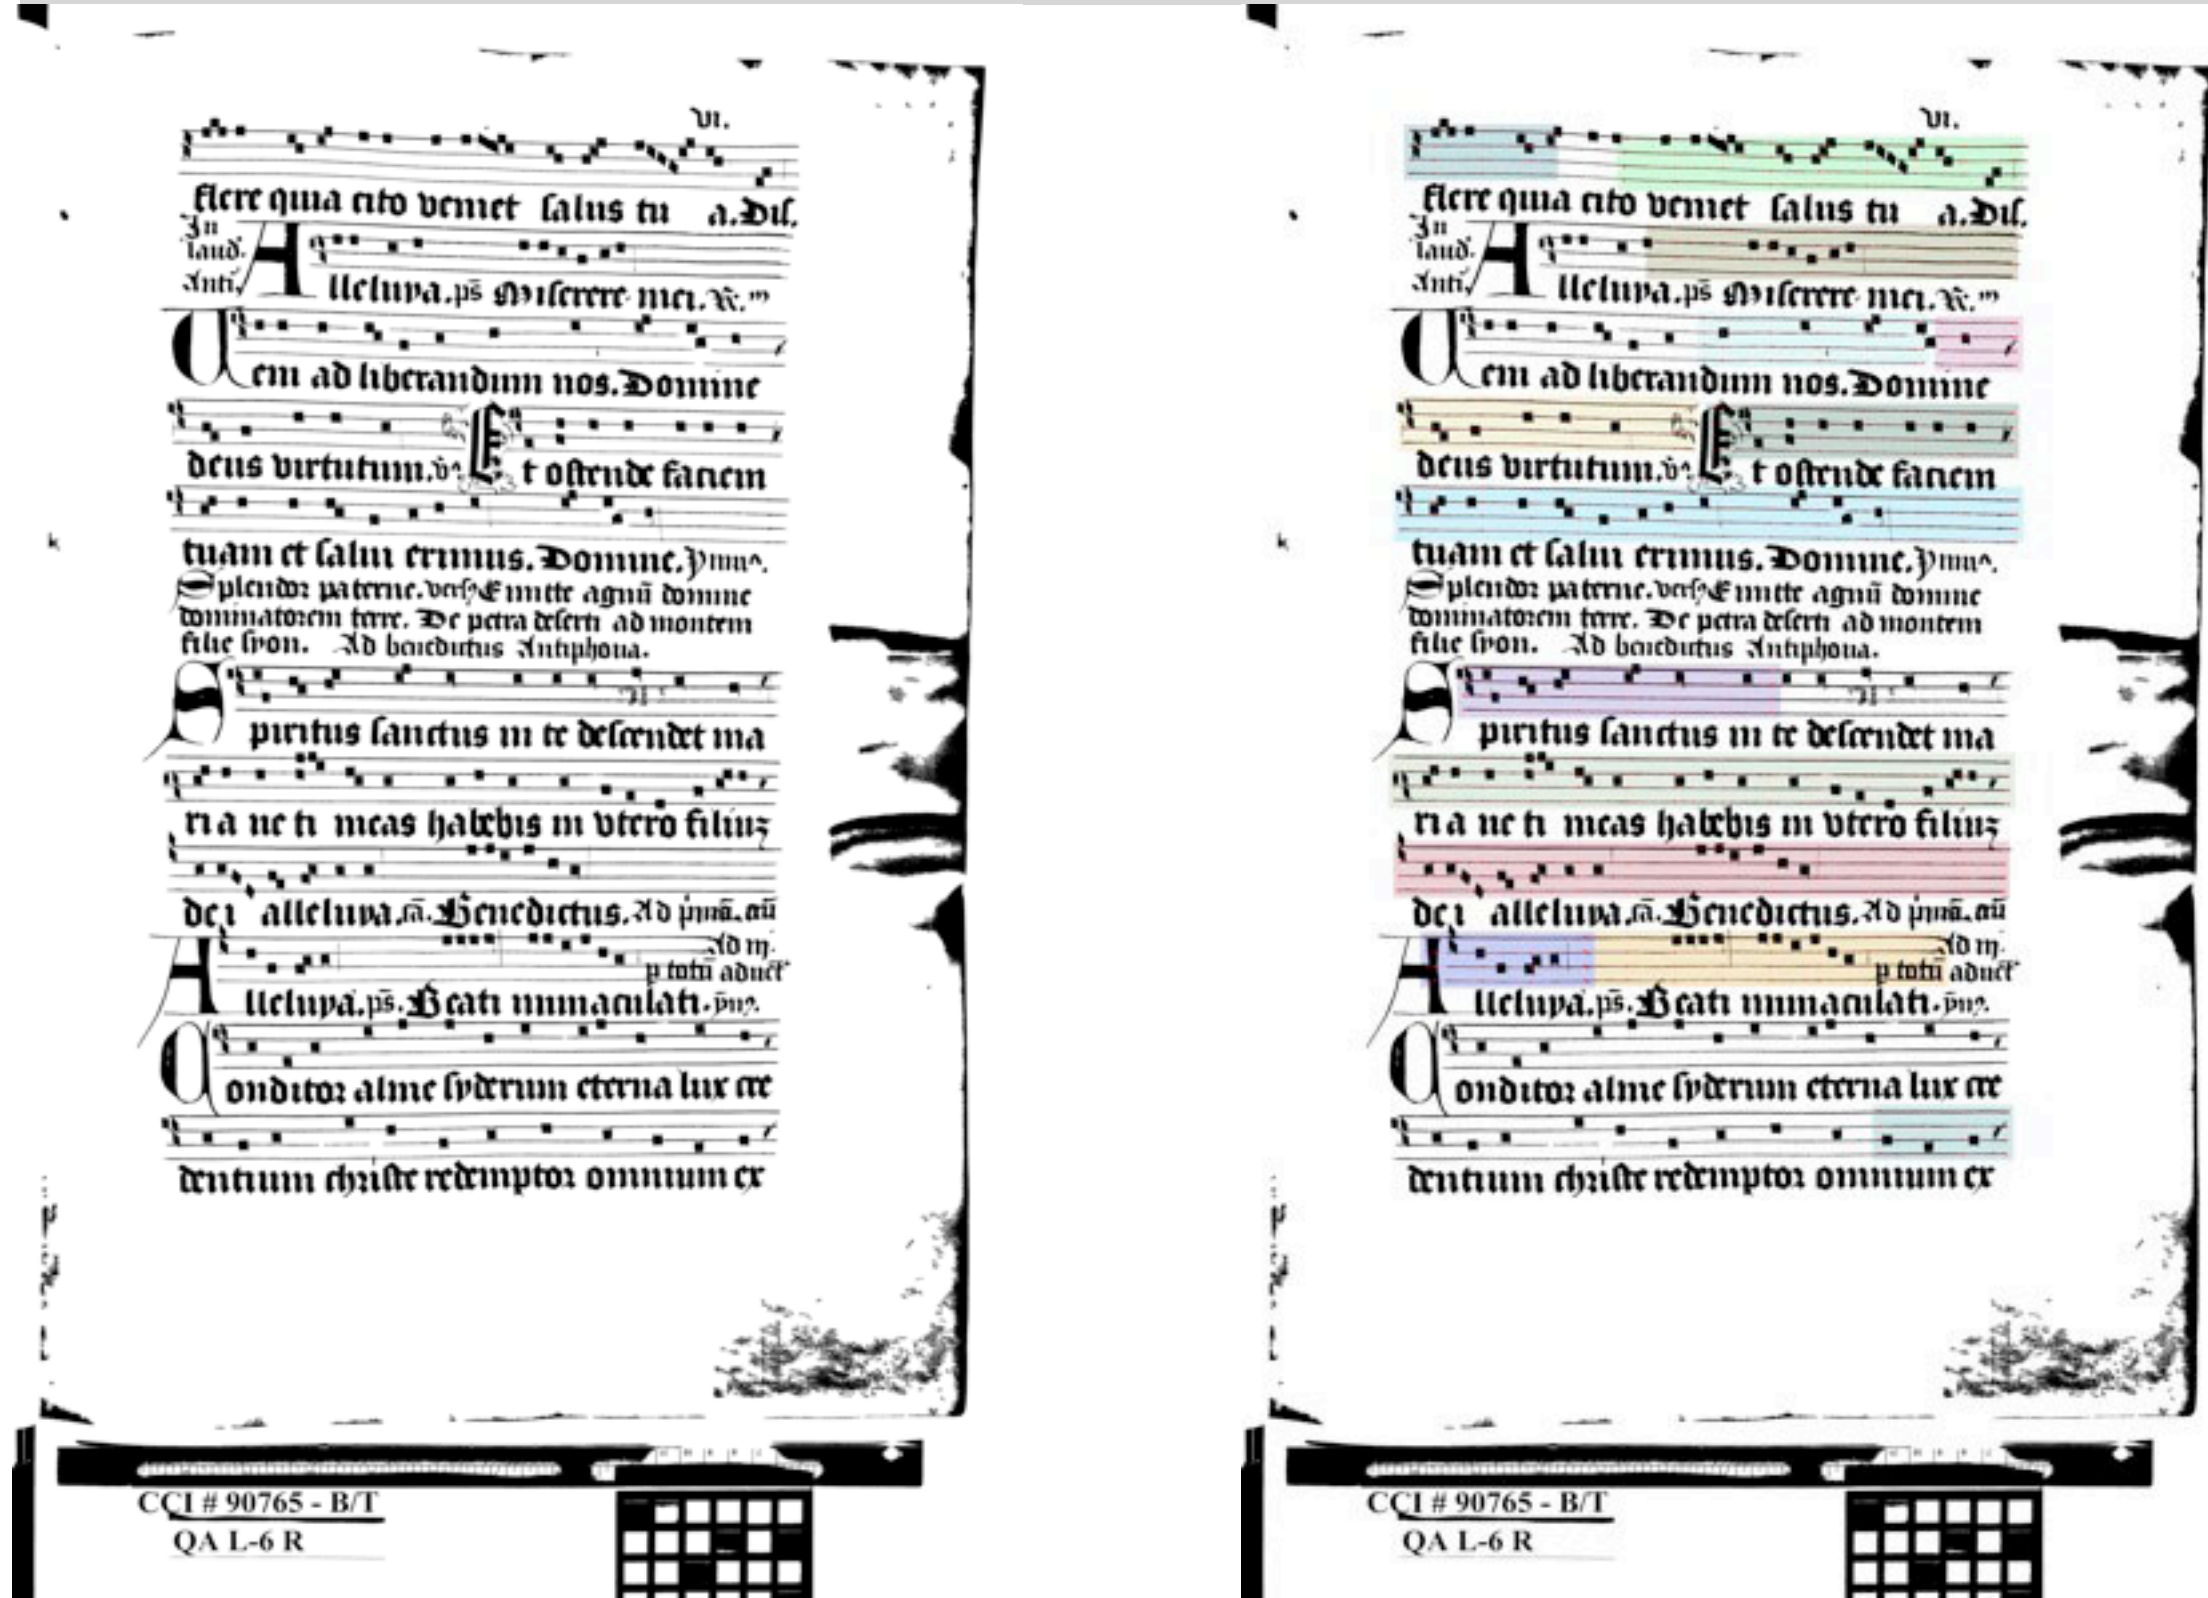 VI.
flere quia cito veniet salus tu a. Dis.
In
laud.
Anti.
Alleluya. ps̄ Miserere mei. R̄.
Veni ad liberandum nos. Domine
deus virtutum. v̄. Et ostende faciem
tuam et salui erimus. Domine. ymn^.
Splendor paterne. vers. Emitte agnū domine
dominatorem terre. De petra deserti ad montem
filie syon. Ad benedictus Antiphona.
Spiritus sanctus in te descendet ma
ria ne ti meas habebis in vtero filiuz
dei alleluya. cā. Benedictus. Ad pimā. an̄
Ad iij.
p totū aduēt
Alleluya. ps̄. Beati immaculati. ȳn.
Conditor alme syderum eterna lux cre
dentium christe redemptor omnium ex
k
CCI # 90765 - B/T
QA L-6 R
VI.
flere quia cito veniet salus tu a. Dis.
In
laud.
Anti.
Alleluya. ps̄ Miserere mei. R̄.
Veni ad liberandum nos. Domine
deus virtutum. v̄. Et ostende faciem
tuam et salui erimus. Domine. ymn^.
Splendor paterne. vers. Emitte agnū domine
dominatorem terre. De petra deserti ad montem
filie syon. Ad benedictus Antiphona.
Spiritus sanctus in te descendet ma
ria ne ti meas habebis in vtero filiuz
dei alleluya. cā. Benedictus. Ad pimā. an̄
Ad iij.
p totū aduēt
Alleluya. ps̄. Beati immaculati. ȳn.
Conditor alme syderum eterna lux cre
dentium christe redemptor omnium ex
k
CCI # 90765 - B/T
QA L-6 R